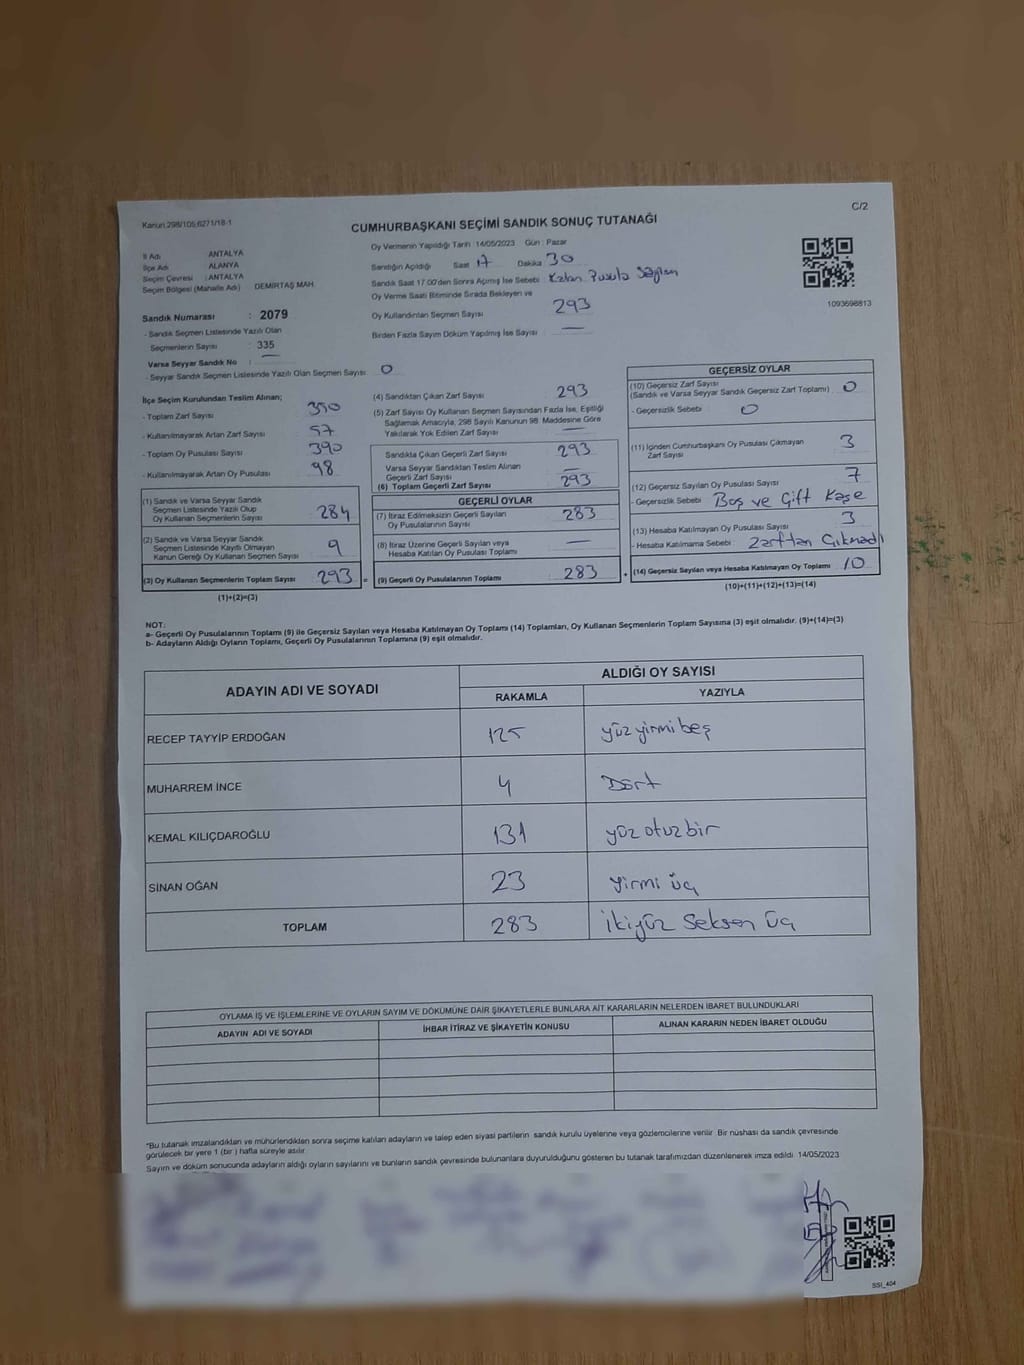 Kanun:298/105,6271/18-1
C/2
CUMHURBAŞKANI SEÇİMİ SANDIK SONUÇ TUTANAĞI
İl Adı ANTALYA
İlçe Adı ALANYA
Seçim Çevresi : ANTALYA
Seçim Bölgesi (Mahalle Adı) DEMİRTAŞ MAH.
Sandık Numarası : 2079
- Sandık Seçmen Listesinde Yazılı Olan
Seçmenlerin Sayısı : 335
Varsa Seyyar Sandık No : —
- Seyyar Sandık Seçmen Listesinde Yazılı Olan Seçmen Sayısı 0
Oy Vermenin Yapıldığı Tarih : 14/05/2023 Gün : Pazar
Sandığın Açıldığı Saat 17 Dakika 30
Sandık Saat 17:00'den Sonra Açılmış İse Sebebi : Kalan Pusula Sayılan
Oy Verme Saati Bitiminde Sırada Bekleyen ve
Oy Kullandırılan Seçmen Sayısı 293
Birden Fazla Sayım Döküm Yapılmış İse Sayısı : —
1093698813
İlçe Seçim Kurulundan Teslim Alınan;
- Toplam Zarf Sayısı 350
- Kullanılmayarak Artan Zarf Sayısı 57
- Toplam Oy Pusulası Sayısı 390
- Kullanılmayarak Artan Oy Pusulası 98
(1) Sandık ve Varsa Seyyar Sandık
Seçmen Listesinde Yazılı Olup
Oy Kullanan Seçmenlerin Sayısı 284
(2) Sandık ve Varsa Seyyar Sandık
Seçmen Listesinde Kayıtlı Olmayan
Kanun Gereği Oy Kullanan Seçmen Sayısı 9
(3) Oy Kullanan Seçmenlerin Toplam Sayısı 293 =
(1)+(2)=(3)
(4) Sandıktan Çıkan Zarf Sayısı 293
(5) Zarf Sayısı Oy Kullanan Seçmen Sayısından Fazla İse, Eşitliği
Sağlamak Amacıyla, 298 Sayılı Kanunun 98. Maddesine Göre
Yakılarak Yok Edilen Zarf Sayısı —
Sandıkta Çıkan Geçerli Zarf Sayısı 293
Varsa Seyyar Sandıktan Teslim Alınan
Geçerli Zarf Sayısı —
(6) Toplam Geçerli Zarf Sayısı 293
GEÇERLİ OYLAR
(7) İtiraz Edilmeksizin Geçerli Sayılan
Oy Pusulalarının Sayısı 283
(8) İtiraz Üzerine Geçerli Sayılan veya
Hesaba Katılan Oy Pusulası Toplamı —
(9) Geçerli Oy Pusulalarının Toplamı 283 +
GEÇERSİZ OYLAR
(10) Geçersiz Zarf Sayısı
(Sandık ve Varsa Seyyar Sandık Geçersiz Zarf Toplamı) 0
- Geçersizlik Sebebi 0
(11) İçinden Cumhurbaşkanı Oy Pusulası Çıkmayan
Zarf Sayısı 3
(12) Geçersiz Sayılan Oy Pusulası Sayısı 7
- Geçersizlik Sebebi : Boş ve Çift Kaşe
(13) Hesaba Katılmayan Oy Pusulası Sayısı 3
- Hesaba Katılmama Sebebi : Zarftan Çıkmadı
(14) Geçersiz Sayılan veya Hesaba Katılmayan Oy Toplamı 10
(10)+(11)+(12)+(13)=(14)
NOT:
a- Geçerli Oy Pusulalarının Toplamı (9) ile Geçersiz Sayılan veya Hesaba Katılmayan Oy Toplamı (14) Toplamları, Oy Kullanan Seçmenlerin Toplam Sayısına (3) eşit olmalıdır. (9)+(14)=(3)
b- Adayların Aldığı Oyların Toplamı, Geçerli Oy Pusulalarının Toplamına (9) eşit olmalıdır.
ADAYIN ADI VE SOYADI ALDIĞI OY SAYISI
RAKAMLA YAZIYLA
RECEP TAYYİP ERDOĞAN 125 yüz yirmi beş
MUHARREM İNCE 4 Dört
KEMAL KILIÇDAROĞLU 131 yüz otuz bir
SİNAN OĞAN 23 yirmi üç
TOPLAM 283 İkiyüz Seksen Üç
OYLAMA İŞ VE İŞLEMLERİNE VE OYLARIN SAYIM VE DÖKÜMÜNE DAİR ŞİKAYETLERLE BUNLARA AİT KARARLARIN NELERDEN İBARET BULUNDUKLARI
ADAYIN ADI VE SOYADI İHBAR İTİRAZ VE ŞİKAYETİN KONUSU ALINAN KARARIN NEDEN İBARET OLDUĞU
*Bu tutanak imzalandıktan ve mühürlendikten sonra seçime katılan adayların ve talep eden siyasi partilerin sandık kurulu üyelerine veya gözlemcilerine verilir. Bir nüshası da sandık çevresinde
görülecek bir yere 1 (bir ) hafta süreyle asılır.
Sayım ve döküm sonucunda adayların aldığı oyların sayılarını ve bunların sandık çevresinde bulunanlara duyurulduğunu gösteren bu tutanak tarafımızdan düzenlenerek imza edildi. 14/05/2023
SSI_404